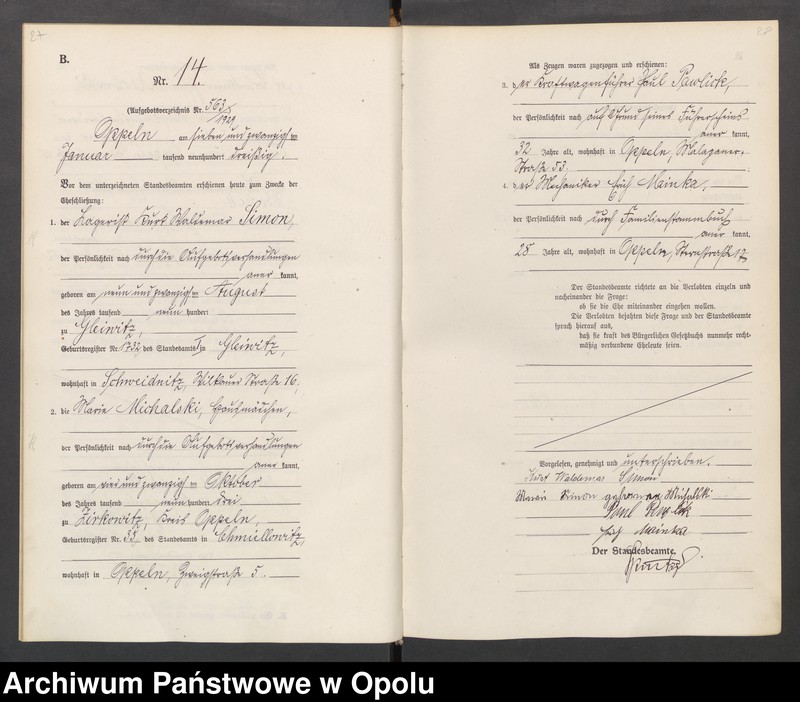 27
B.
Nr. 14.
(Aufgebotsverzeichnis Nr. 563/1929
Oppeln am sieben und zwanzigsten
Januar tausend neunhundert dreißig.
Vor dem unterzeichneten Standesbeamten erschienen heute zum Zwecke der
Eheschließung:
1. der Lagerist Kurt Waldemar Simon,
der Persönlichkeit nach durch die Aufgebotsverhandlungen
aner kannt,
geboren am neun und zwanzigsten August
des Jahres tausend neun hundert
zu Gleiwitz,
Geburtsregister Nr. 1732 des Standesamts I in Gleiwitz,
wohnhaft in Schweidnitz, Wilkauer Straße 16,
2. die Marie Michalski, Hausmädchen,
der Persönlichkeit nach durch die Aufgebotsverhandlungen
aner kannt,
geboren am vier und zwanzigsten Oktober
des Jahres tausend neun hundert drei
zu Zirkowitz, Kreis Oppeln,
Geburtsregister Nr. 33 des Standesamts in Chmiellowitz,
wohnhaft in Oppeln, Zweigstraße 5.
28
Als Zeugen waren zugezogen und erschienen:
3. der Kraftwagenführer Paul Pawlick,
der Persönlichkeit nach auf Grund seines Führerscheins
aner kannt,
32 Jahre alt, wohnhaft in Oppeln, Malapaner-
Straße 53.
4. der Mechaniker Erich Mainka,
der Persönlichkeit nach durch Familienstammbuch
aner kannt,
28 Jahre alt, wohnhaft in Oppeln, Sternstraße 17
Der Standesbeamte richtete an die Verlobten einzeln und
nacheinander die Frage:
ob sie die Ehe miteinander eingehen wollen.
Die Verlobten bejahten diese Frage und der Standesbeamte
sprach hierauf aus,
daß sie kraft des Bürgerlichen Gesetzbuchs nunmehr recht-
mäßig verbundene Eheleute seien.
Vorgelesen, genehmigt und unterschrieben.
Kurt Waldemar Simon
Marie Simon geborene Michalski
Paul Pawlick
Erich Mainka
Der Standesbeamte.
Archiwum Państwowe w Opolu